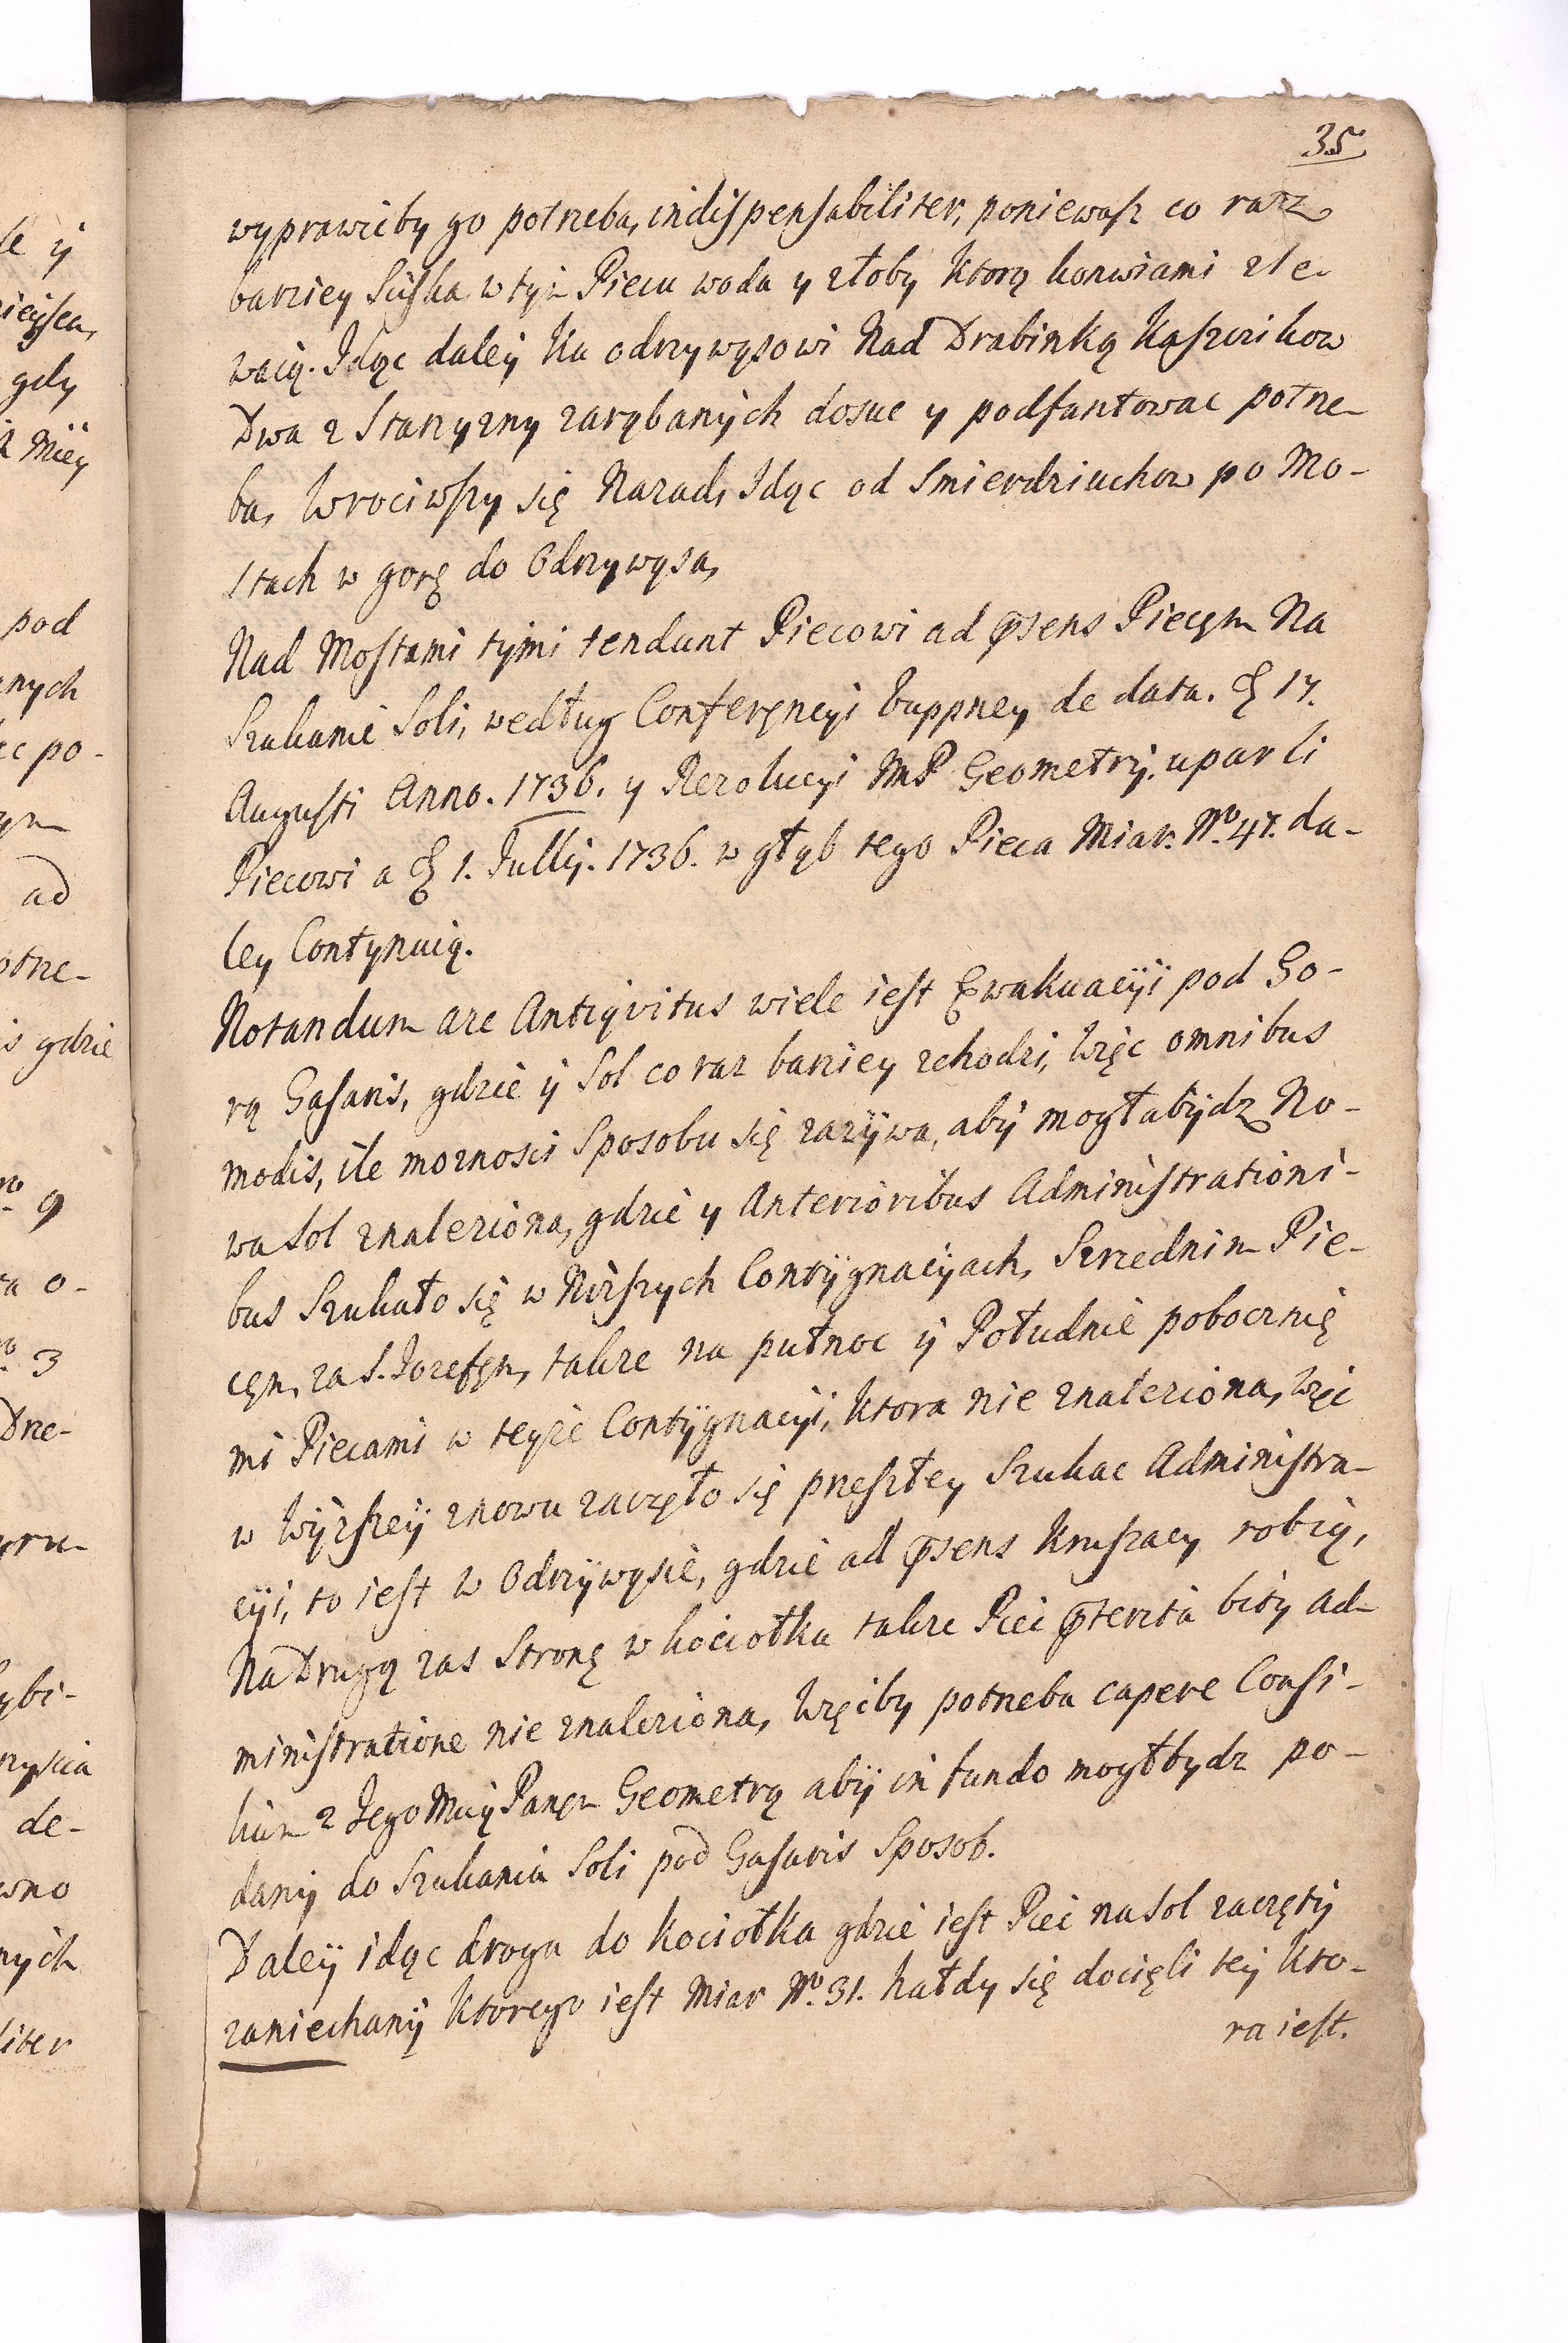 35
wyprawicby go potrzeba, indispensabiliter, poniewasz co razz
barziey Sciska w tym Piecu woda y złoby ktorą konwiami zle-
waią. Idąc daley ku odrzywąsowi Nad Drabinką Kaszczikow
Dwa z Starzyzny zarąbanych dosuc y podfuntowac potrze-
ba, Wrociwszy się Nazad, Idąc od Smierdziuchow po Mo-
stach w gorę do Odrzywąsa,
Nad Mostami tymi tendunt Piecowi ad psens Piecęm Na
Szukanie Soli, według Conferęncyi Zuppney, de data. 17.
Augusti Anno. 1736. y Rezolucyi MP Geometry. uparli
Piecowi a 1. Jullij. 1736. w głąb tego Pieca Miar. No. 47. da-
ley Contynuią.
Notandum aze Antiqvitus wiele iest Ewakuacyi pod Go-
rą Gasaris, gdzie y Sol co raz barziey zchodzi, Więc omnibus
modis, ile moznosci Sposobu się zazywa, aby mogłabydz No-
wa Sol znaleziona, gdzie y Anterioribus Administrationi-
bus Szukało się w Nizszych Contygnacyach, Szrzednim Pie-
cęm, za S. Jozefęm, takze na pułnoc y Południe pobocznię
mi Piecami w teyze Contygnacyi, ktora nie znaleziona, Więc
w Wyzszey znowu zaczęło się przeszłey Szukac Administra-
cyi, to iest w Odrzywąsie, gdzie ad psens Kruszacy robią,
Na Drugą zas Stronę w kociołku takze Piec pterita bity Ad-
ministratione nie znaleziona, Więcby potrzeba capere Consi-
lium z Jego Mcią Panęm Geometrą aby in fundo mogłbydz po-
dany do Szukania Soli pod Gasaris Sposob.
Daley idąc droga do Kociołka gdzie iest Piec na Sol zaczęty
zaniechany ktorego iest Miar No. 31. hałdy się docięli tey kto-
ra iest.